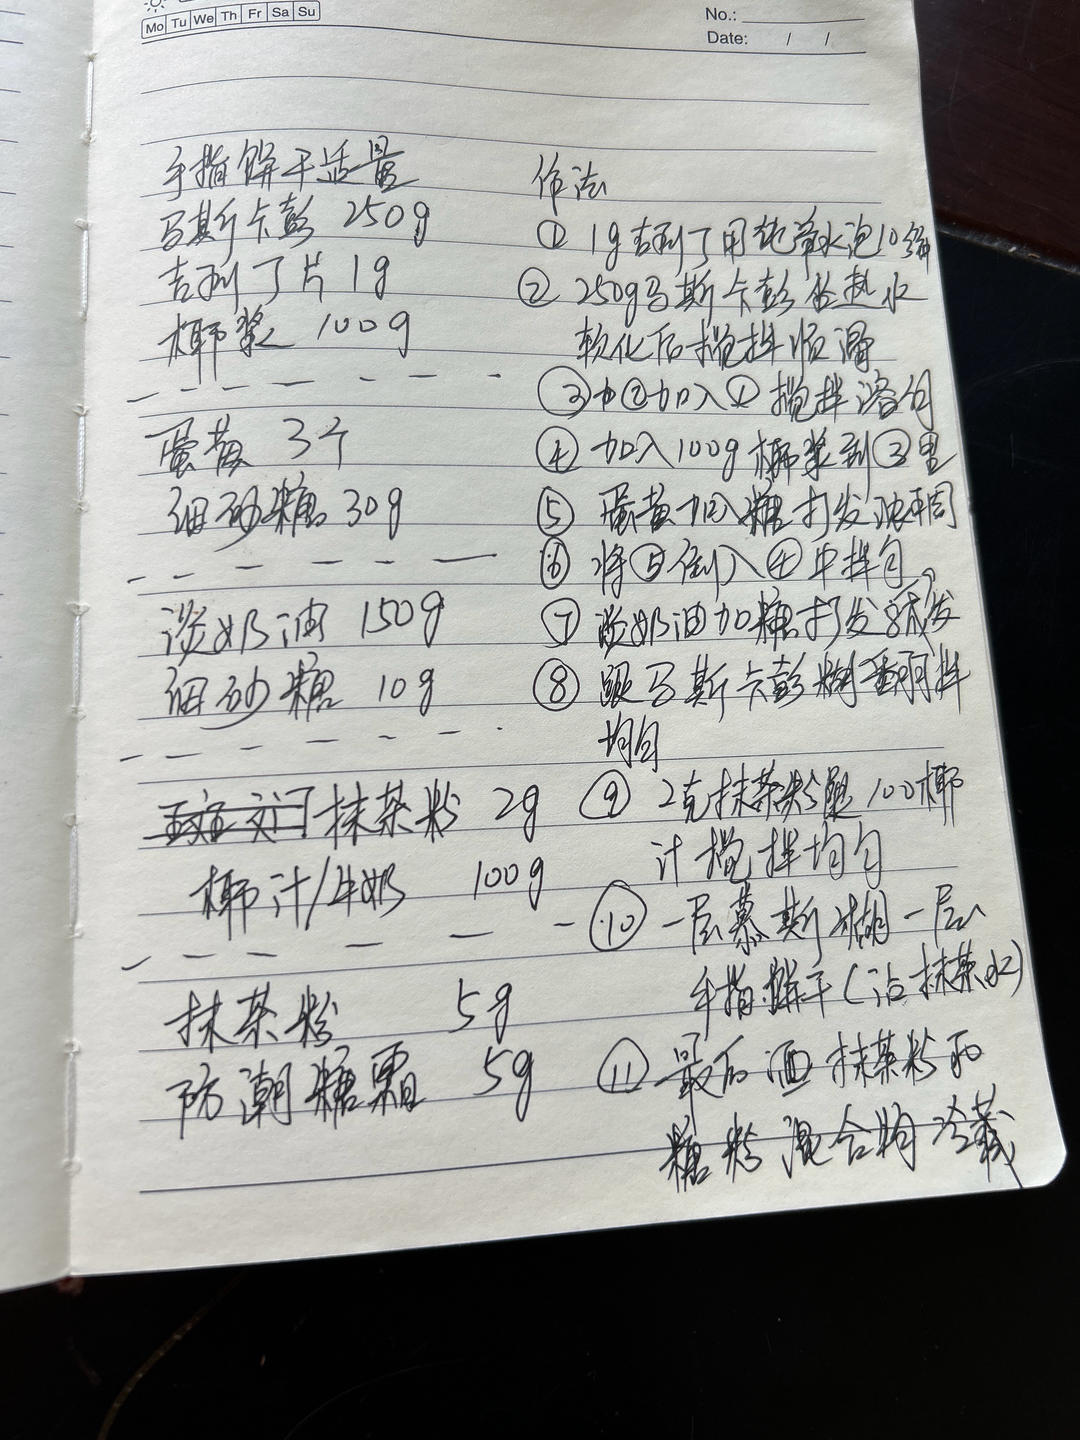 Mo Tu We Th Fr Sa Su
No.:
Date: / /
手指饼干适量
马斯卡彭 250g
吉利丁片 1g
椰浆 100g
蛋黄 3个
细砂糖 30g
淡奶油 150g
细砂糖 10g
抹茶粉 2g
椰汁/牛奶 100g
抹茶粉 5g
防潮糖霜 5g
作法
① 1g吉利丁用纯净水泡10分钟
② 250g马斯卡彭 热水
软化后搅拌顺滑
③ 加②加入① 搅拌溶匀
④ 加入100g椰浆到③里
⑤ 蛋黄加入糖打发浓稠
⑥ 将⑤倒入④中拌匀
⑦ 淡奶油加糖打发 8成发
⑧ 跟马斯卡彭糊翻拌
均匀
⑨ 2克抹茶粉跟100椰
汁搅拌均匀
⑩ 一层慕斯糊一层
手指饼干(沾抹茶水)
⑪ 最后洒抹茶粉和
糖粉混合物冷藏